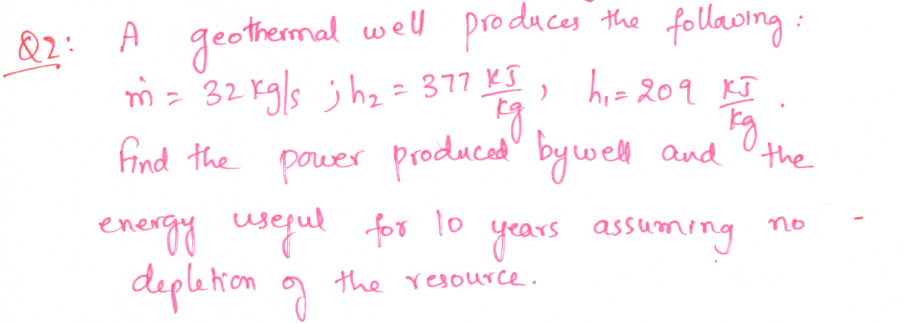 Q2: A geothermal well produces the following:
ṁ = 32 kg/s ; h₂ = 377 KJ/Kg , h₁ = 209 KJ/Kg .
find the power produced by well and the
energy useful for 10 years assuming no
depletion of the resource.